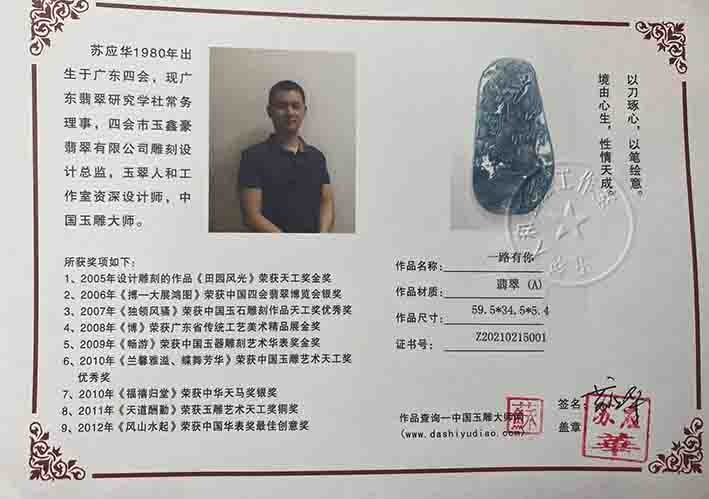 苏应华1980年出
生于广东四会，现广
东翡翠研究学社常务
理事，四会市玉鑫豪
翡翠有限公司雕刻设
计总监，玉翠人和工
作室资深设计师，中
国玉雕大师。
以刀琢心，以笔绘意。
境由心生，性情天成。
所获奖项如下：
1、2005年设计雕刻的作品《田园风光》荣获天工奖金奖
2、2006年《搏一大展鸿图》荣获中国四会翡翠博览会银奖
3、2007年《独领风骚》荣获中国玉石雕刻作品天工奖优秀奖
4、2008年《博》荣获广东省传统工艺美术精品展金奖
5、2009年《畅游》荣获中国玉器雕刻艺术华表奖金奖
6、2010年《兰馨雅溢、蝶舞芳华》荣获中国玉雕艺术天工奖
优秀奖
7、2010年《福禧归堂》荣获中华天马奖银奖
8、2011年《天道酬勤》荣获玉雕艺术天工奖铜奖
9、2012年《风山水起》荣获中国华表奖最佳创意奖
作品名称：一路有你
作品材质：翡翠（A）
作品尺寸：59.5*34.5*5.4
证书号：Z20210215001
作品查询一中国玉雕大师网
(www.dashiyudiao.com)
签名：
盖章：
蘇
華